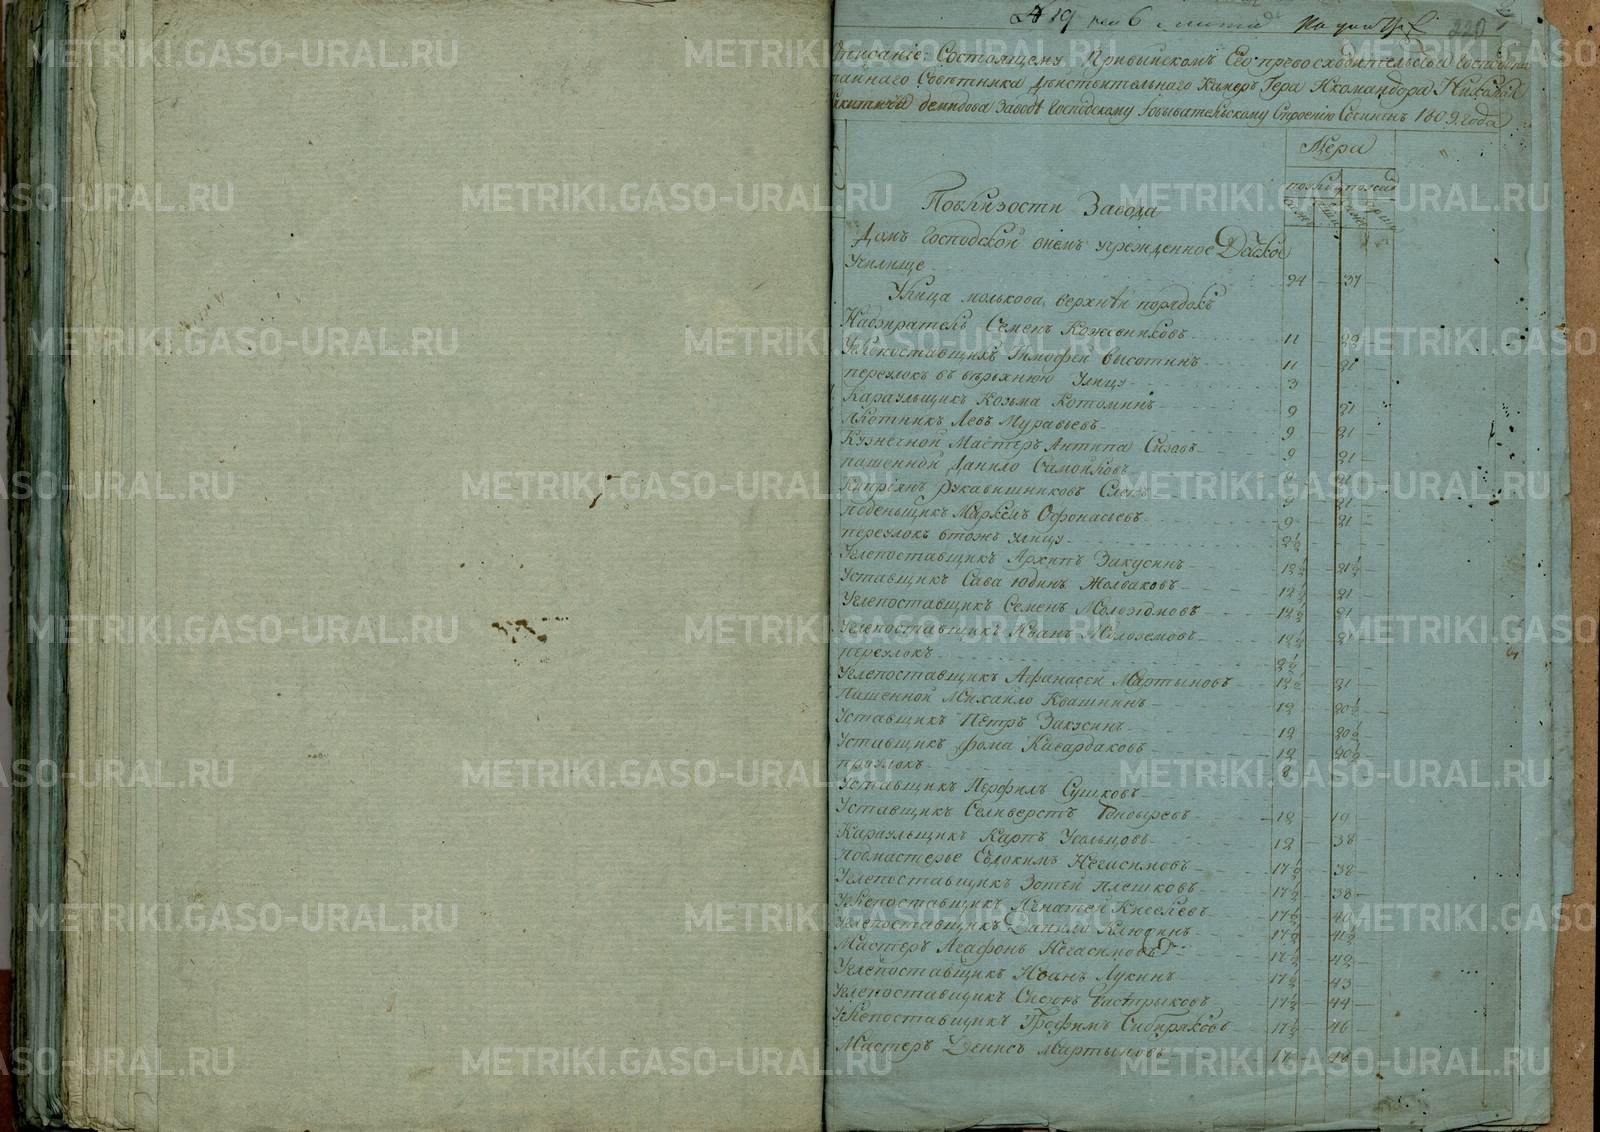 № 19
220
Описание Состоящему При выйскомъ Его превосходительства Господина
тайнаго Советника Действительнаго Камеръ Гера Икомандора Николая
Никитича демидова Заводѣ Господскому Іобывательскому Строению Сочинен 1809 года
Мера
Поблизости Завода
Домъ Господской внемъ учрежденное
Училище 24 37
Улица молькова, верхней порядокъ
Надзиратель Семенъ Кожевниковъ 11
Углепоставщикъ Тимофей высотинъ 11 21
переулокъ въ верьхнюю Улицу 3
Караульщикъ Козьма Котоминъ 9 21
плотникъ Левъ Муравьевъ 9 21
Кузнечной Мастеръ Антипа Сизовъ 9 21
пашенной Данило Самойловъ 9 21
рукавишниковъ 9 21
поденьщикъ Афонасьевъ 9 21
переулокъ втожъ улицу 2½
Углепоставщикъ Архипъ Закусинъ 12½ 21½
Уставщикъ Сава юдинъ Жолваковъ 12½ 21
Углепоставщикъ Семенъ Молоземовъ 12½ 21
Углепоставщикъ Иванъ Молоземовъ 12½ 21
переулокъ 2½
Углепоставщикъ Афанасей Мартыновъ 12½ 21
Пашенной Михайло Квашнинъ 12 20½
Уставщикъ Петръ Закусинъ 12 20½
Уставщикъ Фома Кавардаковъ 12 20½
проулокъ 2
Уставщикъ Перфилъ Сушковъ
Уставщикъ Селиверстъ 12 19
Караульщикъ Карпъ Усольцовъ 12 38
Подмастерье Евдокимъ Негасимовъ 17½ 38
Углепоставщикъ Зотей плешковъ 17½ 38
Углепоставщикъ Игнатей Киселевъ 17½ 40
Углепоставщикъ Данило Клюкинъ 17½ 41½
Мастеръ Агафонъ Негасимовъ 17½ 42
Углепоставщикъ Иванъ Лукинъ 17½ 43
Углепоставщикъ Сысонъ 17½ 44
Углепоставщикъ Трофимъ Сибиряковъ 17½ 46
Мастеръ Денисъ мартыновъ 17
METRIKI.GASO-URAL.RU